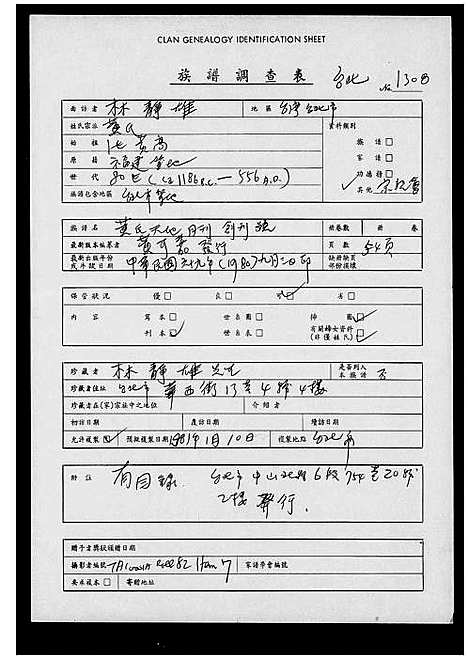 CLAN GENEALOGY IDENTIFICATION SHEET
族譜調查表 台北 No 1308
面訪者 林靜雄 地區 台灣台北市
姓氏宗派 黃氏 資料類別
始祖 1世 黃高 族譜□
原籍 福建 等地 家譜□
世代 80世 (Ca 1186 B.C. — 556 A.D.) 功德榜□
族譜包含地區 台北市等地 其他
族譜名 黃氏天地月刊 創刊號 冊卷數 冊 卷
最新版本編纂者 發行 頁數 54頁
最新出版年份或手録日期 中華民國六十九年(1980)九月二日印 缺冊缺頁部份損壞
保管狀況 優□ 良□ 可□ 劣□
內容 寫本□ 世系圖□ 挿圖□
刊本□ 世系表□ 有關婦女資料(非僅姓氏)□
珍藏者 林靜雄先生 是否列入本族譜 否
珍藏者住址 台北市華西街15巷4號4樓
珍藏者在(家)家族中之地位 介紹者
初訪日期 產訪日期 續訪日期
允許複製□ 預擬複製日期 1981年1月10日 複製地點 台北市
附註 有目録. 台北市中山北路6段754巷20號
2樓 發行.
贈予者獎狀頒贈日期
攝影者編號 Reel 82 Item 7 家譜學會編號
要求複本□ 寄贈地址